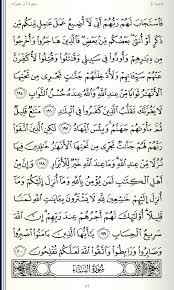 فَٱسْتَجَابَ لَهُمْ رَبُّهُمْ أَنِّى لَآ أُضِيعُ عَمَلَ عَـٰمِلٍ مِّنكُم مِّن
ذَكَرٍ أَوْ أُنثَىٰ بَعْضُكُم مِّنۢ بَعْضٍ فَٱلَّذِينَ هَاجَرُوا۟ وَأُخْرِجُوا۟
مِن دِيَـٰرِهِمْ وَأُوذُوا۟ فِى سَبِيلِى وَقَـٰتَلُوا۟ وَقُتِلُوا۟ لَأُكَفِّرَنَّ
عَنْهُمْ سَيِّـَٔاتِهِمْ وَلَأُدْخِلَنَّهُمْ جَنَّـٰتٍ تَجْرِى مِن تَحْتِهَا
ٱلْأَنْهَـٰرُ ثَوَابًا مِّنْ عِندِ ٱللَّهِ وَٱللَّهُ عِندَهُۥ حُسْنُ ٱلثَّوَابِ ١٩٥
لَا يَغُرَّنَّكَ تَقَلُّبُ ٱلَّذِينَ كَفَرُوا۟ فِى ٱلْبِلَـٰدِ ١٩٦ مَتَـٰعٌ قَلِيلٌ
ثُمَّ مَأْوَىٰهُمْ جَهَنَّمُ وَبِئْسَ ٱلْمِهَادُ ١٩٧ لَـٰكِنِ ٱلَّذِينَ ٱتَّقَوْا۟
رَبَّهُمْ لَهُمْ جَنَّـٰتٌ تَجْرِى مِن تَحْتِهَا ٱلْأَنْهَـٰرُ خَـٰلِدِينَ فِيهَا
نُزُلًا مِّنْ عِندِ ٱللَّهِ وَمَا عِندَ ٱللَّهِ خَيْرٌ لِّلْأَبْرَارِ ١٩٨ وَإِنَّ مِنْ
أَهْلِ ٱلْكِتَـٰبِ لَمَن يُؤْمِنُ بِٱللَّهِ وَمَآ أُنزِلَ إِلَيْكُمْ وَمَآ أُنزِلَ
إِلَيْهِمْ خَـٰشِعِينَ لِلَّهِ لَا يَشْتَرُونَ بِـَٔايَـٰتِ ٱللَّهِ ثَمَنًا
قَلِيلًا أُو۟لَـٰٓئِكَ لَهُمْ أَجْرُهُمْ عِندَ رَبِّهِمْ إِنَّ ٱللَّهَ
سَرِيعُ ٱلْحِسَابِ ١٩٩ يَـٰٓأَيُّهَا ٱلَّذِينَ ءَامَنُوا۟ ٱصْبِرُوا۟
وَصَابِرُوا۟ وَرَابِطُوا۟ وَٱتَّقُوا۟ ٱللَّهَ لَعَلَّكُمْ تُفْلِحُونَ ٢٠٠
سُورَةُ النِّسَاءِ
٧٦